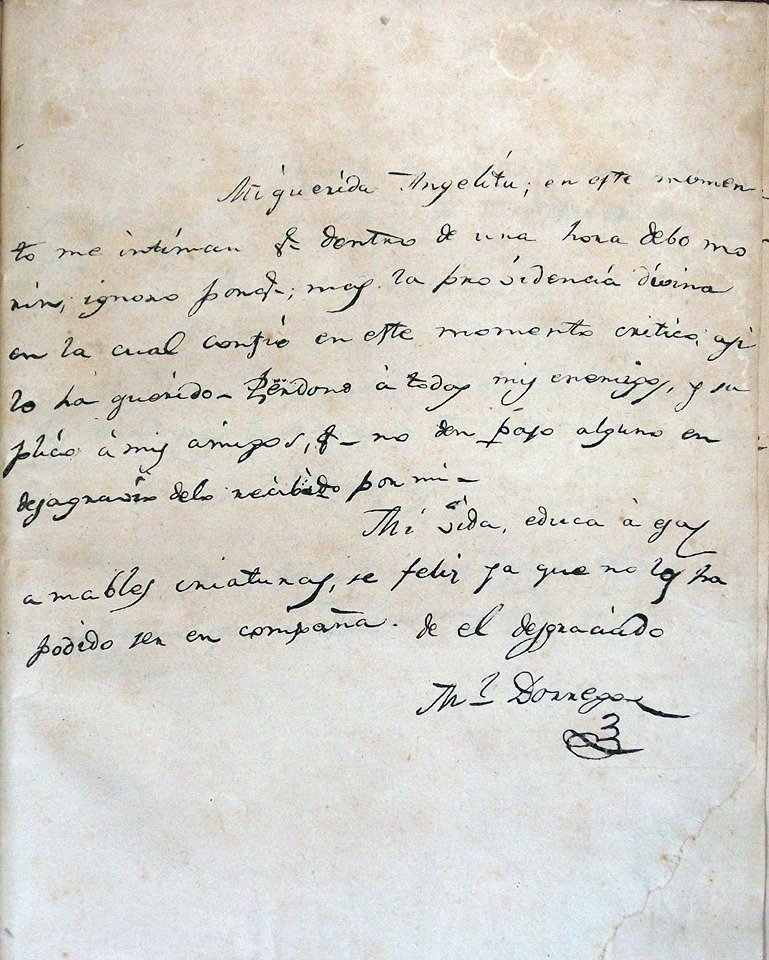 Mi querida Angelita; en este momen-
to me intiman q.e dentro de una hora debo mo
rir; ignoro porq.e; mas la providencia divina
en la cual confio en este momento critico, asi
lo ha querido - Perdono à todos mis enemigos, y su
plico à mis amigos, q.e no den paso alguno en
desagravio delo recibido por mi -
Mi vida, educa à esas
amables criaturas, se feliz ya que no lo ha
podido ser en compaña. de el desgraciado
M.l Dorrego